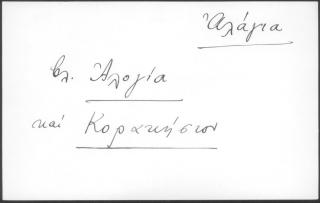 Ἀλάγια
βλ. Ἀλογία
καί Κορακήσιον